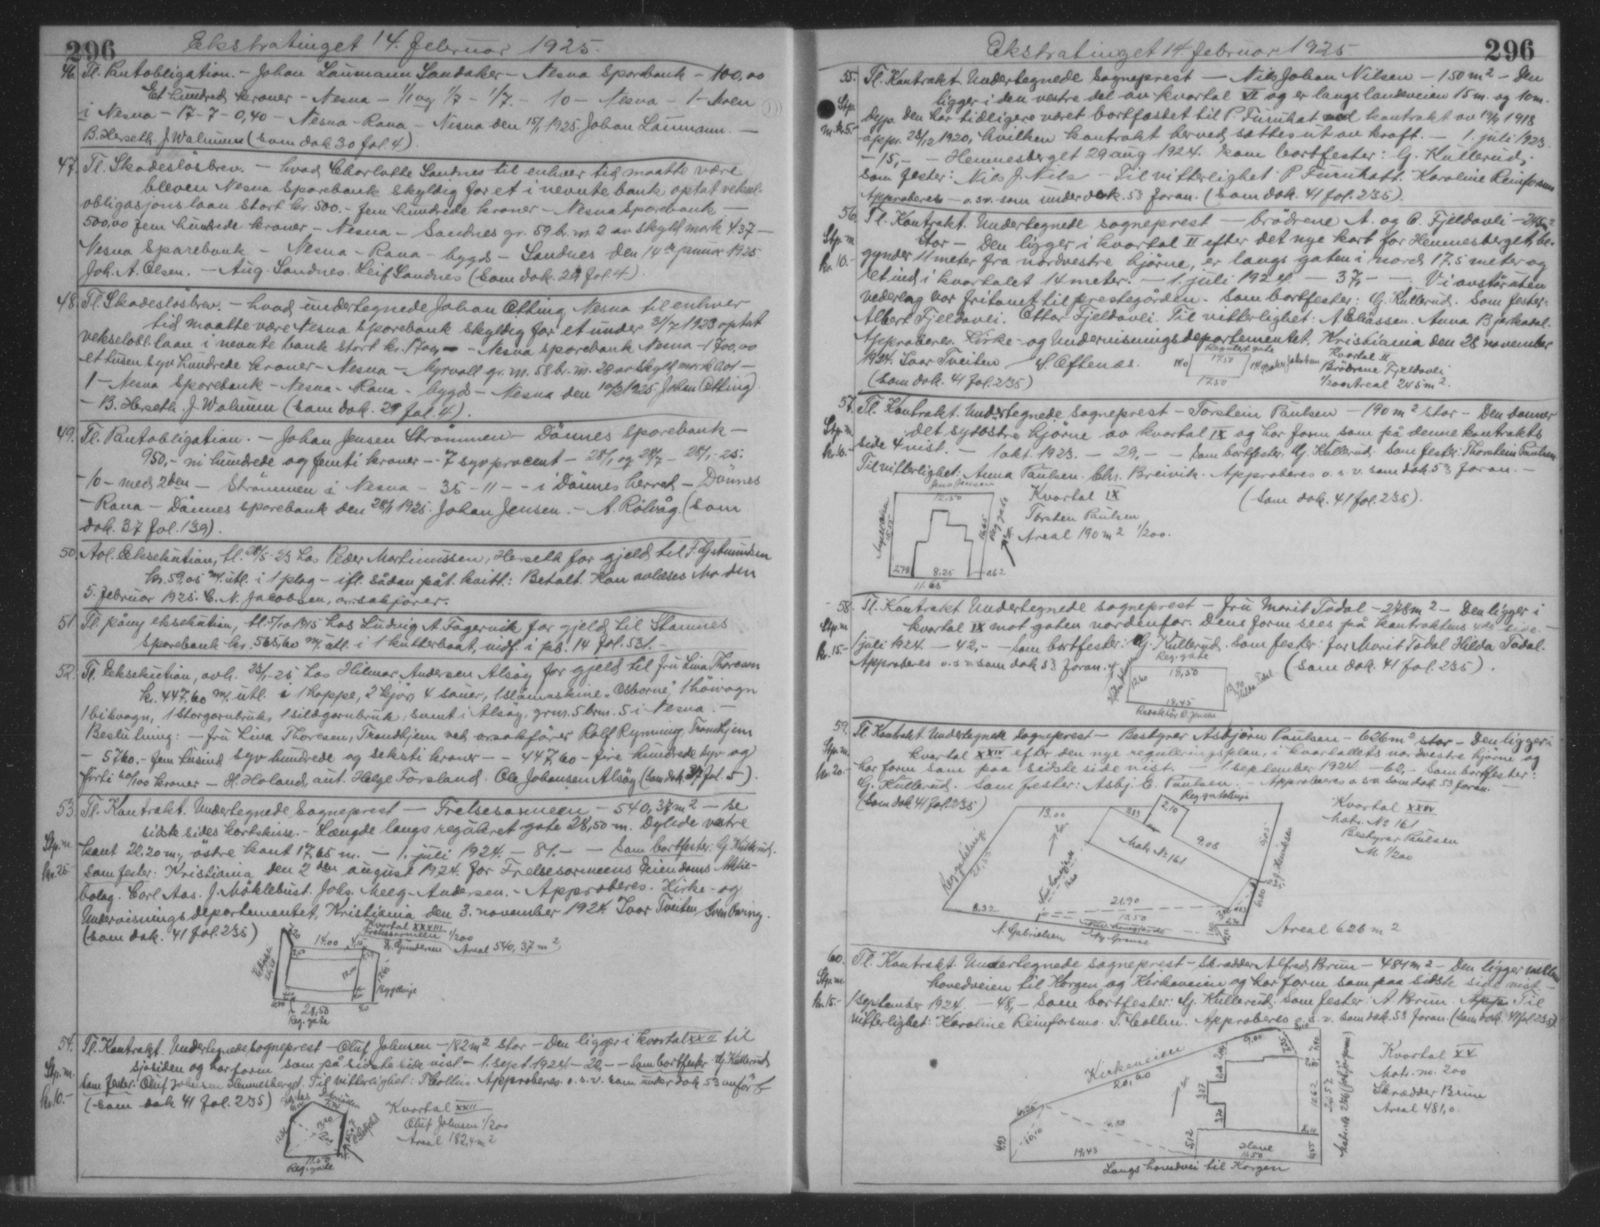 296 Ekstratinget 14. februar 1925.
46. Tl. Pantobligation. - Johan Laumann Sandaker - Nesna Sparebank - 100,00
Et hundred kroner - Nesna - 1/1 og 1/7 - 1/7. - 10 - Nesna - 1 - Aren
i Nesna - 17 - 7 - 0,40 - Nesna - Rana - Nesna den 15/1 1925 Johan Laumann. -
B. Herseth. J. Walnum (som dok 30 fol 4).
47. Tl. Skadesløsbrev. - hvad Charlotte Sandnes til enhver tid maatte være
bleven Nesna Sparebank skyldig for et i nevnte bank optat veksel-
obligasjonslaan stort kr. 500.- fem hundrede kroner - Nesna Sparebank -
500,00 fem hundrede kroner - Nesna - Sandnes gr. 59 b. m. 2 av skyld mark 4.37 -
Nesna Sparebank - Nesna - Rana - bygd - Sandnes den 14de januar 1925
Joh. A. Olsen. - Aug Sandnes. Leif Sandnes (som dok. 29 fol. 4).
48. Tl. Skadesløsbrev. - hvad undertegnede Johan Etting Nesna til enhver
tid maatte være Nesna Sparebank skyldig for et under 31/7 1923 optat
vekselobl.laan i nevnte bank stort kr. 1700,- - Nesna Sparebank Nesna - 1700,00
et tusen syv hundrede kroner - Nesna - Myrvoll gr. m. 58 b. m. 28 av skyld mark 0.01 -
1 - Nesna Sparebank - Nesna - Rana - bygd - Nesna den 10/2 1925 Johan Etting
- B. Herseth. J. Walnum (som dok. 29 fol. 4).
49. Tl. Pantobligation. - Johan Jensen Strømmen - Dønnes Sparebank -
950,- ni hundrede og femti kroner - 7 syv procent - 28/1 og 28/7 - 28/1-25.
- 10 - med 2den - Strømmen i Nesna - 35 - 11 - - i Dønnes herred - Dønnes
- Rana - Dønnes Sparebank den 28/1 1925. Johan Jensen. - A. Rølvåg (som
dok. 37 fol. 139).
50. Avl. Eksekution, tl. 20/5-23 hos Peder Martinussen, Herseth for gjeld til F. Gjstmundsen
kr. 59,05 m/. utl. i 1 plog - ifl. sådan påt. kvitt: Betalt. Kan avlæses Mo den
5. februar 1925. C. N. Jakobsen, o.r.sakfører.
51 Tl. påny eksekution, tl. 7/10 1915 hos Ludvig A. Fagervik for gjeld til Stamnes
Sparebank kr. 565,60 m/. utl. i 1 kutterbaat, indf. i pb. 14 fol. 531. -
52. Tl. Eksekution, avh. 23/1-25 hos Hilmar Andersen Alsøy for gjeld til fru Lina Thoresen
kr. 447,60 m/. utl. i 1 hoppe, 2 kjør, 4 sauer, 1 slåmaskine "Osborne", 1 høivogn
1 bikvogn, 1 storgarnbruk, 1 sildgarnbruk, samt i Alsøy, grm. 5 brm. 5 i Nesna. -
Beslutning: - fru Lina Thoresen, Trondhjem ved orsakfører Rolf Rynning, Trondhjem
- 5760.- fem tusind syv hundrede og seksti kroner - - 447,60 - fire hundrede syv og
førti 60/100 kroner - H. Holand, aut. Helge Forsland. Ole Johansen Alsøy (som dok 27 fol. 5).
53. Tl. Kontrakt. Undertegnede sogneprest - Frelsesarmeen - 540,37 m² - se
Stp. m. sidste sides kartskisse. - Længde langs regulert gate 28,50 m. Dybde vestre
kr. 25.- kant 21.20 m., østre kant 17,65 m. - 1. juli 1924. - 81.- - Som bortfester: G. Kullerud.
Som fester: Kristiania den 2den august 1924. For Frelsesarmeens Eiendoms Aktie-
bolag. Carl Aas. J. Møklebust. Johs. Meeg-Andersen. - Approberes. Kirke- og
Undervisningsdepartementet, Kristiania den 3. november 1924. Ivar Tveiten Sven Oving.
(som dok. 41 fol. 235)
Kvartal XXXIII
Frelsesarmeen 1/200
Areal 540,37 m²
14.00
28,50
Reg. gate
54. Tl. Kontrakt. Undertegnede sogneprest - Oluf Johnsen - 182 m² stor - Den ligger i kvartal XXII til
Stp. m. sjøsiden og har form som på sidste side vist - 1. sept. 1924 - 20.- - Som bortfester G. Kullerud
kr. 10.- Som fester: Oluf Johnsen Hemnesberget. Til vitterlighet: T. Collin. Approberes o.s.v. som under dok 53 anført
(som dok 41 fol. 235)
Kvartal XXII
Oluf Johnsen 1/200
Areal 182,4 m²
Reg. gate
Ekstratinget 14 februar 1925 296
55. Tl. Kontrakt. Undertegnede sogneprest - Nils Johan Nilsen - 150 m² - Den
Stp. ligger i den vestre del av kvartal VI og er langs landeveien 15 m. og 10 m.
m. kr. 5.- dyp. den har tidligere været bortfæstet til P. Furuhat ved kontrakt av 19/9 1918
appr. 28/12 1920, hvilken kontrakt herved sættes ut av kraft. - 1. juli 1923.
- 15,- - Hemnesberget 29 aug 1924. Som bortfester: G. Kullerud,
Som fester: Nils J. Nils - Til vitterlighet: P. Furuhatt. Karoline Reinforsmo
Approberes - o.s.v. som under dok. 53 foran. (som dok. 41 fol. 235).
56. Tl. Kontrakt. Undertegnede sogneprest - brødrene A. og O. Fjeldavli - 245 m²
Stp. m. stor - Den ligger i kvartal II efter det nye kart for Hemnesberget, be-
kr. 10.- gynder 11 meter fra nordvestre hjørne, er langs gaten i nord 17.5 meter og
et ind i kvartalet 14 meter. - 1. juli 1924 - 37,- - Vi avstår uten
vederlag vor fritomt til prestegården. Som bortfester: G. Kullerud. Som fester:
Albert Fjeldavli. Ottar Fjeldavli. Til vitterlighet: A. Eliassen. Anna Bjerkadal.
Approberes. Kirke- og Undervisningsdepartementet. Kristiania den 28 november
1924. Ivar Tveiten A. Oftenæs.
(som dok. 41 fol. 235)
Regulert gate
17.50
14.0
17.50
Kvartal II
Brødrene Fjeldavli
1/200 Areal 245 m².
57. Tl. Kontrakt. Undertegnede sogneprest - Torstein Paulsen - 190 m² stor - Den danner
Stp. m. det sydøstre hjørne av kvartal IX og har form som på denne kontrakts
kr. 10.- side 4 vist. - 1 okt. 1923. - 29,- - Som bortfester: G. Kullerud. Som fester: Thorstein Paulsen
Til vitterlighet: Anna Paulsen. Chr. Breivik. Approberes o. s. v. som dok 53 foran. -
(som dok. 41 fol. 235).
12,50
Reg. gate
2.78
8.25
11.65
Kvartal IX
Torsten Paulsen
Areal 190 m² 1/200.
58. Tl. Kontrakt Undertegnede sogneprest - Fru Marit Todal - 278 m² - Den ligger i
Stp. m. kvartal IX mot gaten nordenfor. Dens form sees på kontraktens 4de side. -
kr. 15.- 1 juli 1924. - 42,- - Som bortfester: G. Kullerud. Som fester: for Marit Todal Hilda Todal.
Approberes o.s.v. som dok 53 foran. (som dok. 41 fol. 235).
Reg. gate
19,50
19.45
59. Tl. Kontrakt Undertegnede sogneprest - Bestyrer Asbjørn Paulsen - 626 m² stor - Den ligger i
Stp. m. kvartal XXIV efter den nye reguleringsplan, i kvartallets nordvestre hjørne og
kr. 20.- har form som paa sidste side vist. - 1 september 1924. - 62,- Som bortfester:
G. Kullerud. Som fester: Asbj. E. Paulsen. Approberes o.s.v. som dok. 53 foran. -
(som dok 41 fol. 235)
Reg. gatelinje
13.00
Matr. Nr 161
9.05
21,90
8.32
N. Gabrielsen
Kvartal XXIV
Matr. No 161
Bestyrer Paulsen
M. 1/200
Areal 626 m²
60. Tl. Kontrakt. Undertegnede sogneprest - Skrædder Alfred Brun - 481 m² - Den ligger mellem
Stp. m. hovedveien til Korgen og Kirkeveien og har form som paa sidste side vist -
kr. 15.- 1 September 1924 - 48,- Som bortfester: G. Kullerud. Som fester: A. Brun. Til
vitterlighet: Karoline Reinforsmo. T. Collin. Approberes o. s. v. som dok. 53 foran. (som dok. 41 fol. 235)
Kirkeveien
20,60
9,00
10,10
19,43
Have
Langs hovedvei til Korgen
Kvartal XX
Matr. nr. 200
Skrædder Brun
Areal 481,0